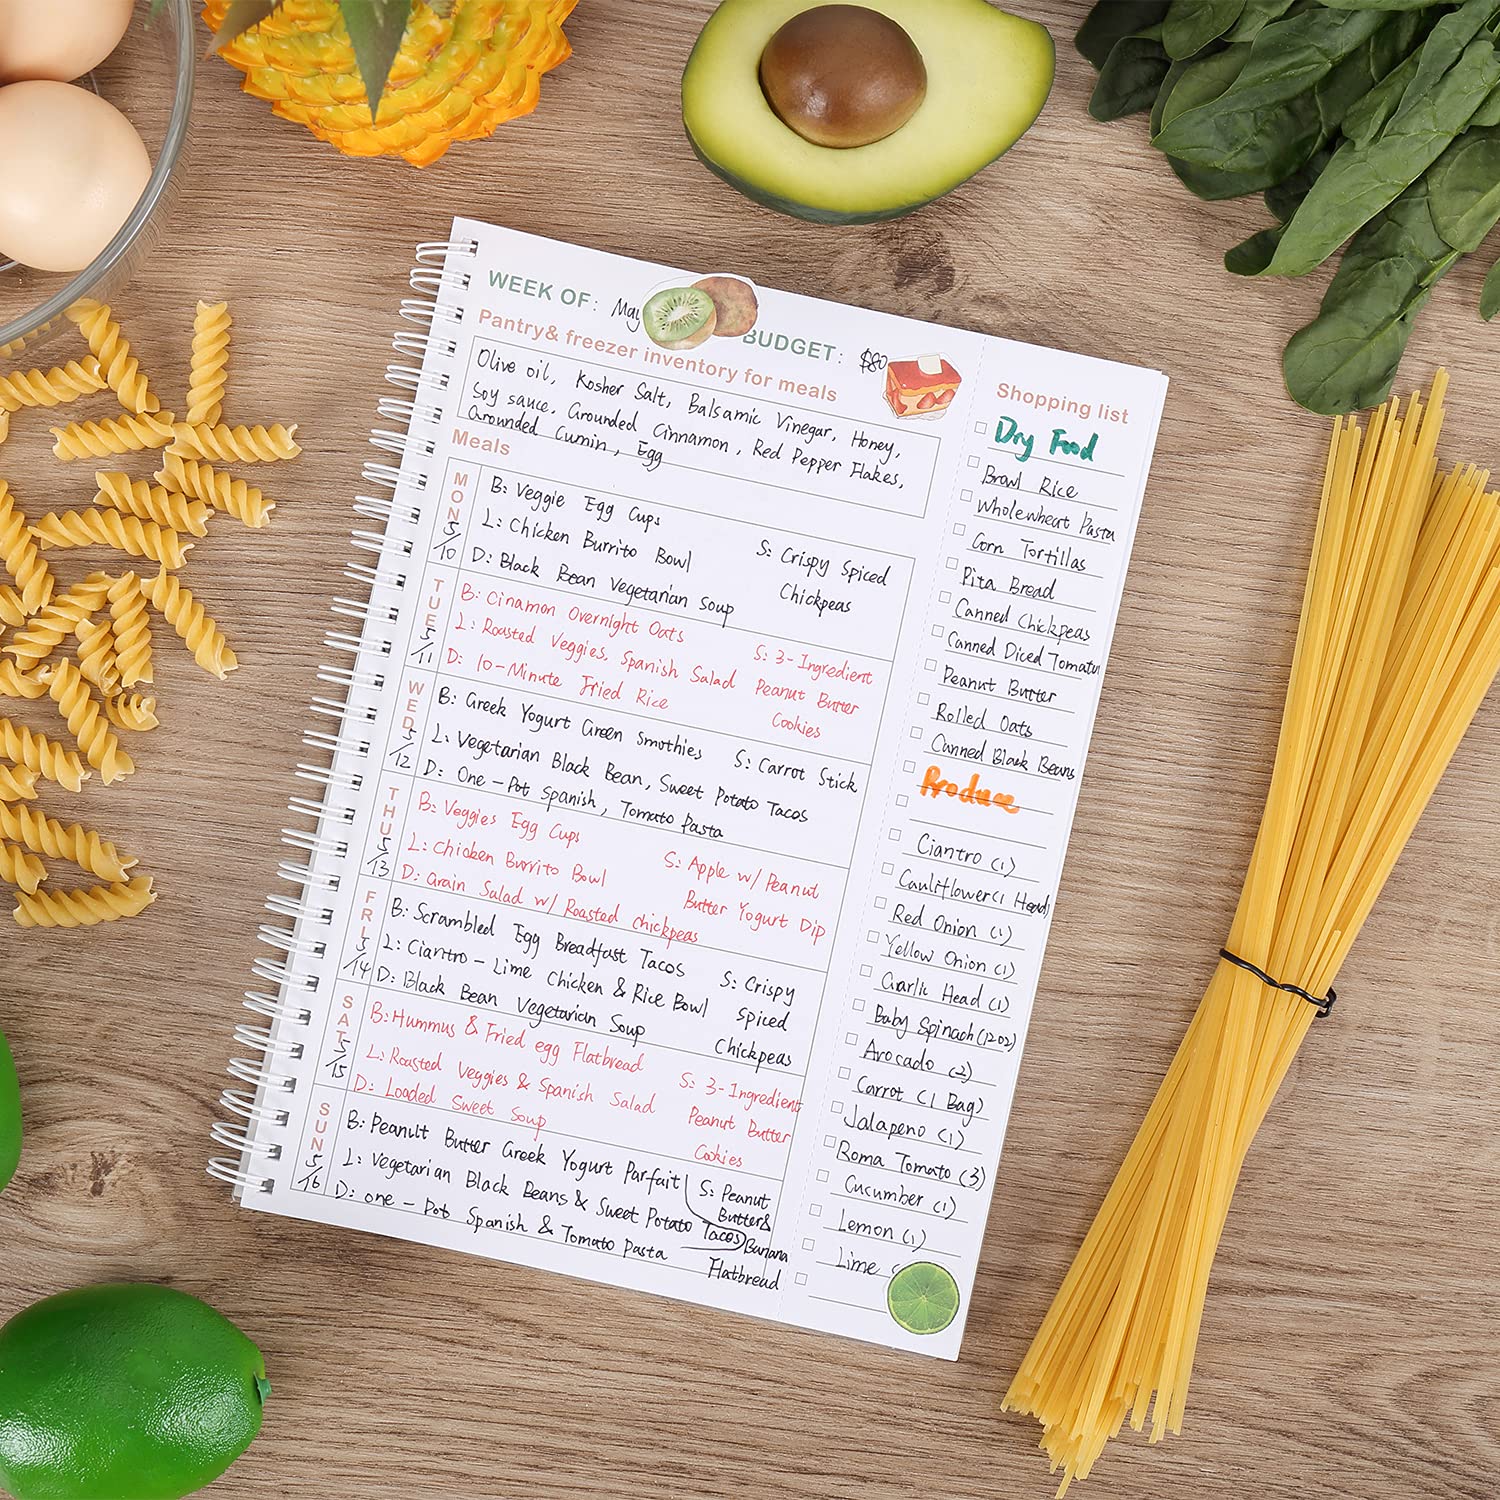 WEEK OF: May
BUDGET: $80
Pantry& freezer inventory for meals
Olive oil, Kosher Salt, Balsamic Vinegar, Honey,
Soy sauce, Grounded Cinnamon, Red Pepper Flakes,
Grounded Cumin, Egg
Meals
MON 5/10
B: Veggie Egg Cups
L: Chicken Burrito Bowl
D: Black Bean Vegetarian Soup
S: Crispy Spiced
Chickpeas
TUE 5/11
B: Cinamon Overnight Oats
L: Roasted Veggies, Spanish Salad
D: 10-Minute Fried Rice
S: 3-Ingredient
Peanut Butter
Cookies
WED 5/12
B: Greek Yogurt Green Smothies
L: Vegetarian Black Bean, Sweet Potato Tacos
D: One-Pot Spanish, Tomato Pasta
S: Carrot Stick
THU 5/13
B: Veggies Egg Cups
L: Chicken Burrito Bowl
D: Grain Salad w/ Roasted Chickpeas
S: Apple w/ Peanut
Butter Yogurt Dip
FRI 5/14
B: Scrambled Egg Breadfast Tacos
L: Ciantro-Lime Chicken & Rice Bowl
D: Black Bean Vegetarian Soup
S: Crispy
Spiced
Chickpeas
SAT 5/15
B: Hummus & Fried egg Flatbread
L: Roasted Veggies & Spanish Salad
D: Loaded Sweet Soup
S: 3-Ingredient
Peanut Butter
Cookies
SUN 5/16
B: Peanult Butter Greek Yogurt Parfait
L: Vegetarian Black Beans & Sweet Potato Tacos
D: One-Pot Spanish & Tomato Pasta
S: Peanut
Butter&
Banana
Flatbread
Shopping list
Dry Food
Browl Rice
Wholewheart Pasta
Corn Tortillas
Pita Bread
Canned Chickpeas
Canned Diced Tomatu
Peanut Butter
Rolled Oats
Canned Black Beans
Produce
Ciantro (1)
Cauliflower (1 Head)
Red Onion (1)
Yellow Onion (1)
Garlic Head (1)
Baby Spinach (12oz)
Avocado (2)
Carrot (1 Bag)
Jalapeno (1)
Roma Tomato (3)
Cucumber (1)
Lemon (1)
Lime